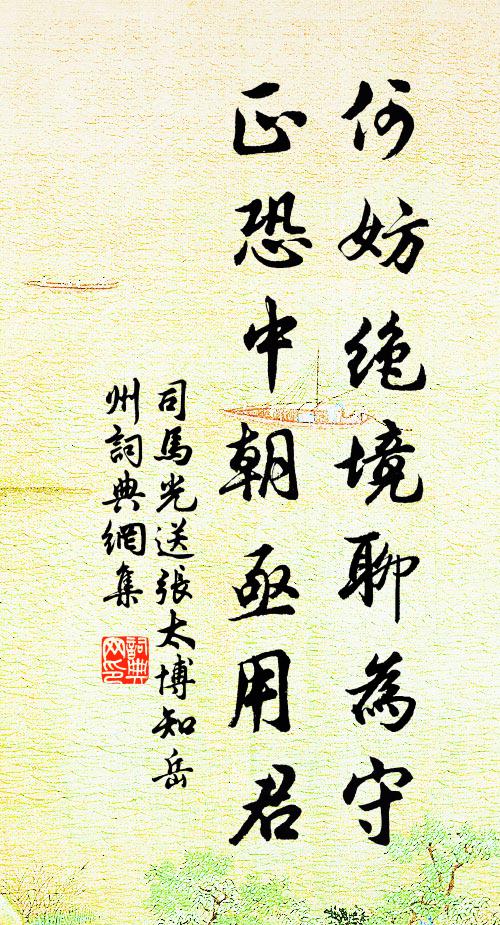 何妨絶境聊為守
正恐中朝亟用君
司馬光送張太博知岳
州詞典網集
詞典网印